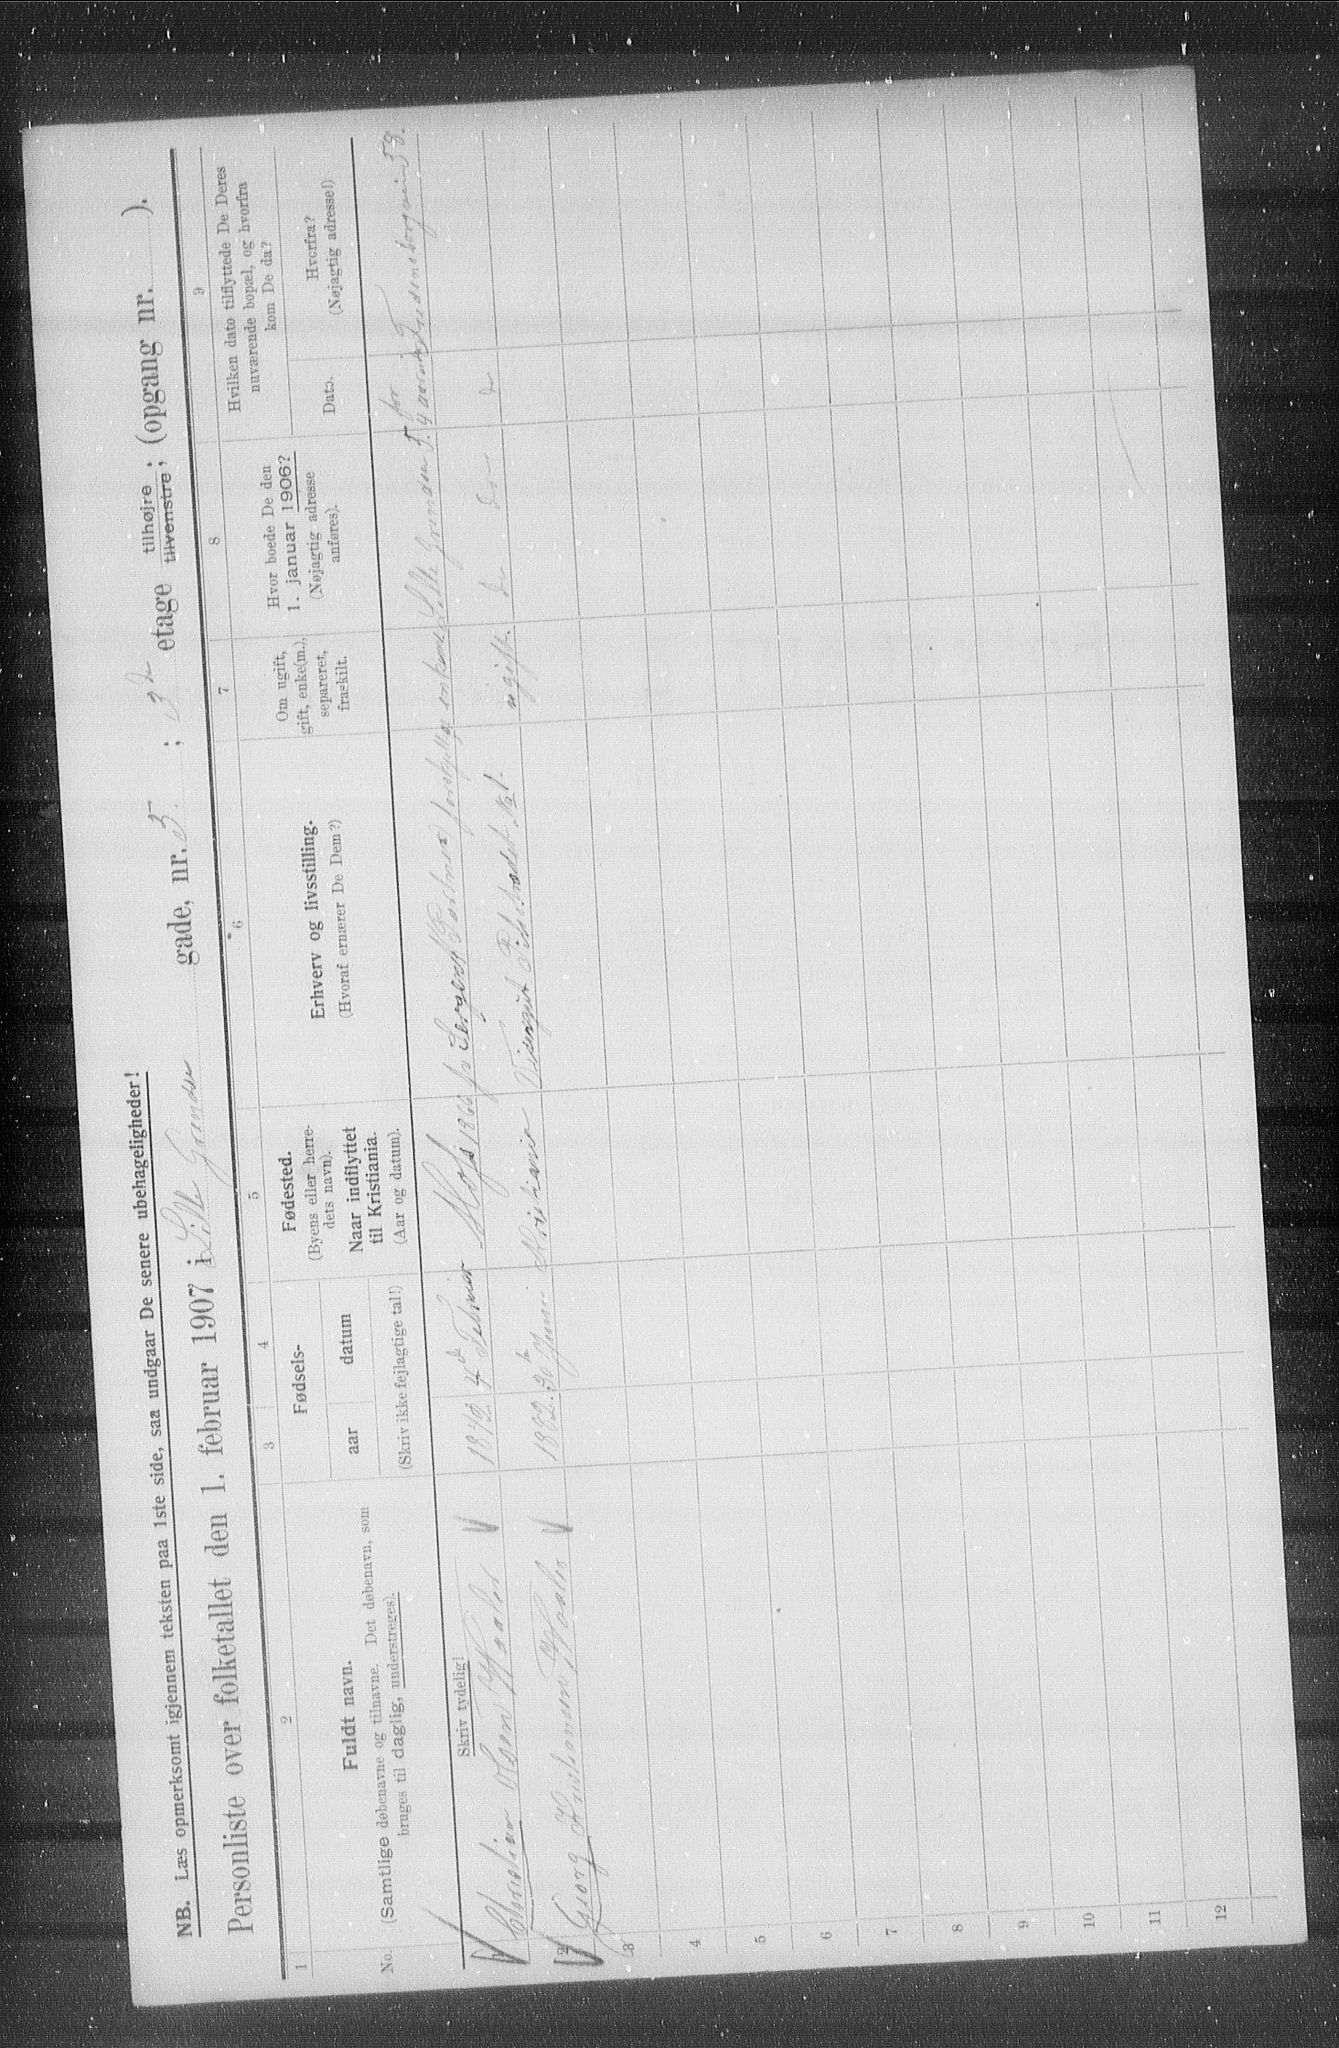 NB. Læs opmerksomt igjennem teksten paa 1ste side, saa undgaar De senere ubehageligheder!
Personliste over folketallet den 1. februar 1907 i Lille Grændsen gade, nr. 5. ; 3de etage tilhøjre ; tilvenstre; (opgang nr. ).
1 2 3 4 5 6 7 8 9
No.
Fuldt navn.
(Samtlige døbenavne og tilnavne. Det døbenavn, som
bruges til daglig, understreges).
Fødsels-
aar datum
(Skriv ikke fejlagtige tal!)
Fødested.
(Byens eller herre-
dets navn).
Naar indflyttet
til Kristiania.
(Aar og datum).
Erhverv og livsstilling.
(Hvoraf ernærer De Dem?)
Om ugift,
gift, enke(m.),
separeret,
fraskilt.
Hvor boede De den
1. januar 1906?
(Nøjagtig adresse
anføres).
Hvilken dato tilflyttede De Deres
nuværende bopæl, og hvorfra
kom De da?
Dato.
Hvorfra?
(Nøjagtig adresse!)
Skriv tydelig!
Christian Olsen Waaler 1842 4de Februar Moss 1866 enkem. Lille Grændsen 5. for 58.
2 Georg Waaler 1882. 30te Juni Kristiania ugift. do do do
3
4
5
6
7
8
9
10
11
12